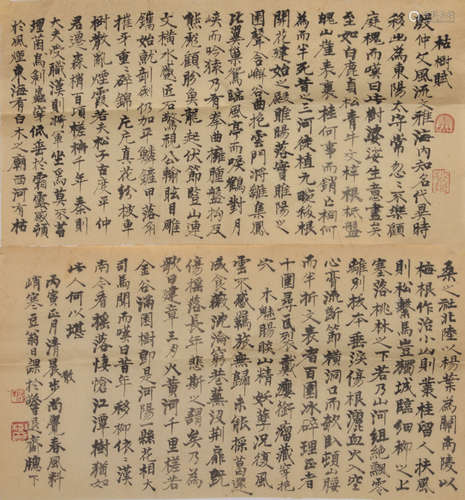 枯樹賦
殷仲文風流文雅海內知名代異時
移出為東陽太守常忽忽不樂顧
庭槐而嘆曰此樹婆娑生意盡矣
至如白鹿貞松青牛文梓根柢盤
魄山崖表裏桂何事而銷亡桐何
為而半死昔之三河徙植九畹移根
開花建始之殿落實睢陽之
園聲含嶰谷曲抱雲門將雛集鳳
比翼巢鴛臨風亭而唳鶴對月
峽而吟猿乃有拳曲擁腫盤坳反
覆熊彪顧盼魚龍起伏節豎山連
文橫水蹙匠石驚視公輸眩目雕
鐫始就剞劂仍加平鱗鏟甲落角
摧牙重重碎錦片片真花紛披草
樹散亂煙霞若夫松子古度平仲
君遷森梢百頃槎枿千年秦則
大夫受職漢則將軍坐焉莫不苔
埋菌壓鳥剝蟲穿低垂於霜露撼頓
於風煙東海有白木之廟西河有枯
桑之社北陸以楊葉為關南陵以
梅根作冶小山則叢桂留人扶風
則松繫馬豈獨城臨細柳之上
塞落桃林之下若乃山河阻絕飄零
離別拔本垂淚傷根瀝血火入空
心膏流斷節橫洞口而欹臥頓山腰
而半折文衺者百圍冰碎理正者
千尋瓦裂戴癭銜瘤藏穿抱
穴木魅睒睗山精妖孽況復風
雲不感羈旅無歸未能採葛還
成食薇沉淪窮巷蕪沒荊扉既
傷搖落長年悲斯之謂矣乃為
歌曰建章三月火黃河千里槎若
金谷滿園樹即是河陽一縣花桓大
司馬聞而嘆曰昔年移柳依依漢
南今看搖落悽愴江潭樹猶如
此人何以堪
丙寅正月清晨步尚馨春風料
峭寒豆翁日課於齋牕下